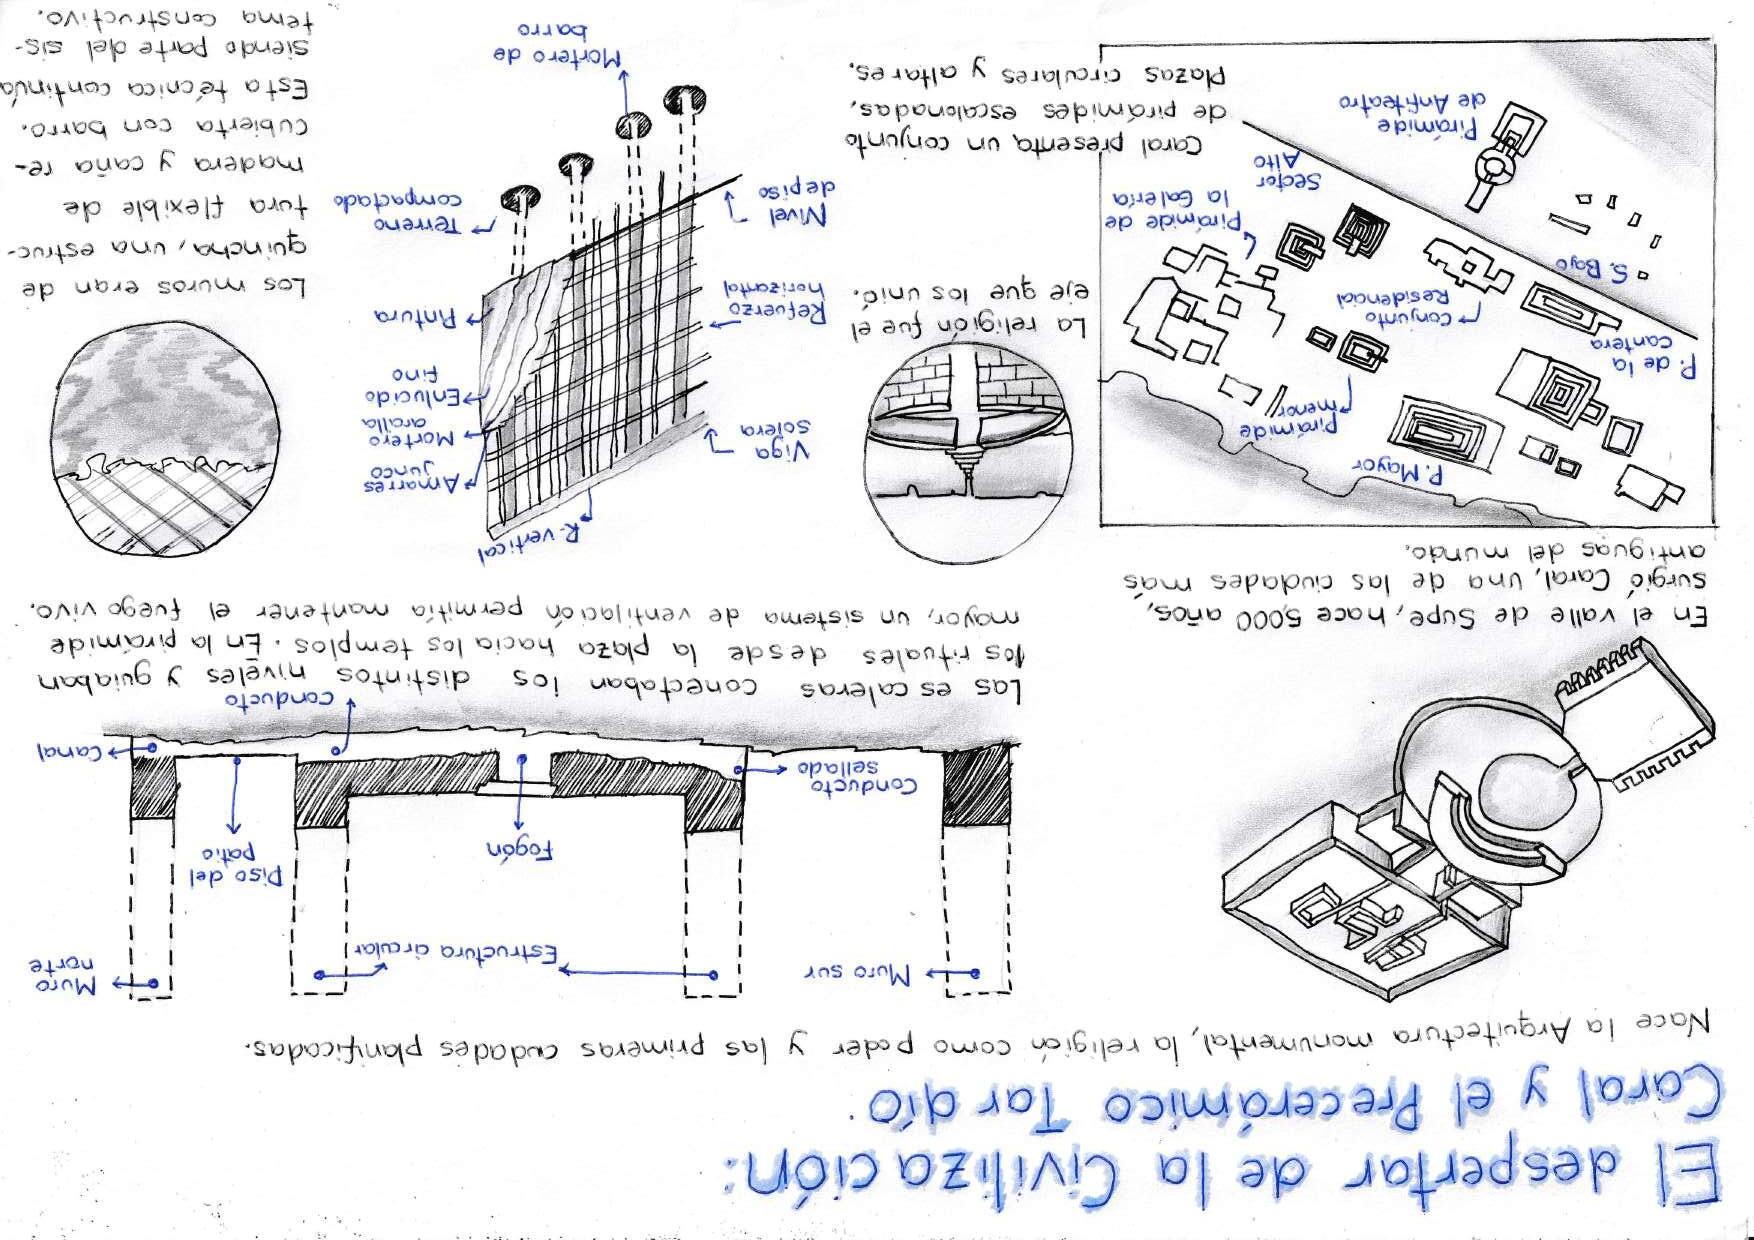 El despertar de la Civilización:
Caral y el Precerámico Tardío.
Nace la Arquitectura monumental, la religión como poder y las primeras ciudades planificadas.
Muro sur
Estructura circular
Muro
norte
Fogón
Piso del
patio
Conducto
sellado
Canal
Conducto
Las escaleras conectaban los distintos niveles y guiaban
los rituales desde la plaza hacia los templos. En la pirámide
mayor, un sistema de ventilación permitía mantener el fuego vivo.
En el valle de Supe, hace 5,000 años,
surgió Caral, una de las ciudades más
antiguas del mundo.
P. Mayor
Pirámide
menor
P. de la
cantera
Conjunto
Residencial
S. Bajo
Pirámide de
la Galería
Sector
Alto
Pirámide
de Anfiteatro
La religión fue el
eje que los unió.
Caral presenta un conjunto
de pirámides escalonadas,
Plazas circulares y altares.
R. vertical
Viga
solera
Amarres
junco
Mortero
arcilla
Enlucido
fino
Refuerzo
horizontal
Pintura
Nivel
de piso
Terreno
compactado
Mortero de
barro
Los muros eran de
quincha, una estruc-
tura flexible de
madera y caña re-
cubierta con barro.
Esta técnica continúa
siendo parte del sis-
tema constructivo.